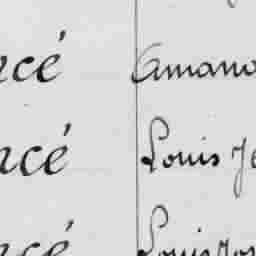 ncé Amand
ncé Louis Je
ncé Louis Jos